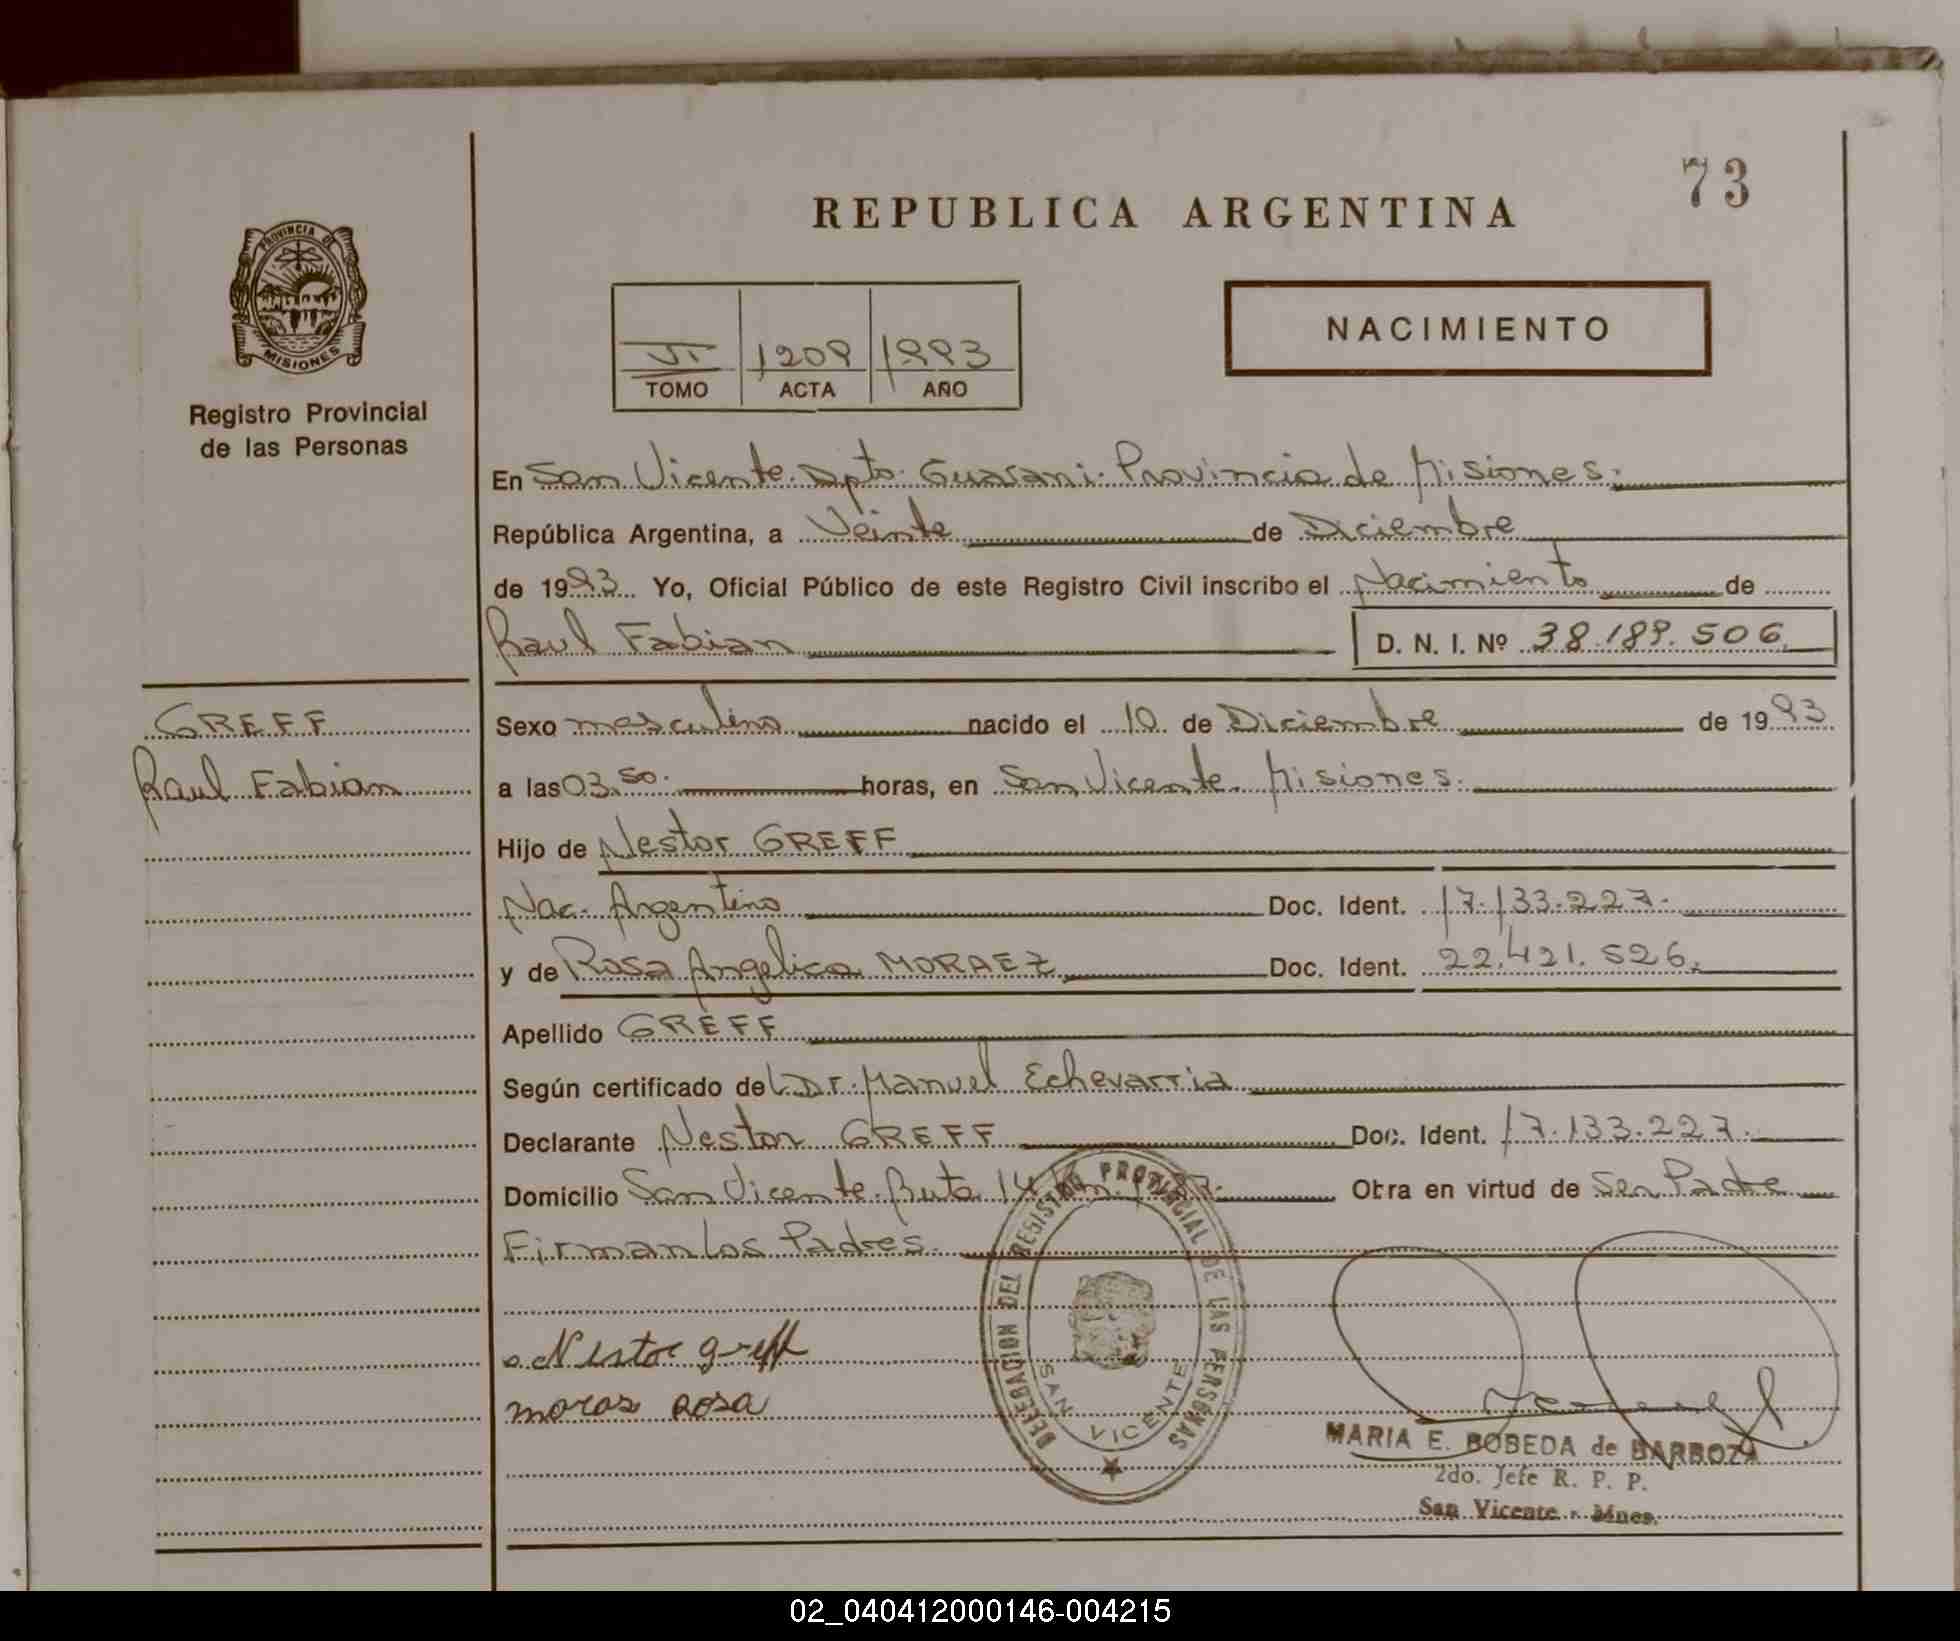 73
REPUBLICA ARGENTINA
PROVINCIA DE
MISIONES
Registro Provincial
de las Personas
NACIMIENTO
VI 1209 1993
TOMO ACTA AÑO
En San Vicente. Dpto. Guarani. Provincia de Misiones.
República Argentina, a Veinte de Diciembre
de 1993 Yo, Oficial Público de este Registro Civil inscribo el Nacimiento de
Raul Fabian D. N. I. Nº 38.189.506
GREFF
Raul Fabian
Sexo masculino nacido el 10 de Diciembre de 1993
a las 03,50. horas, en San Vicente. Misiones.
Hijo de Nestor GREFF
Nac. Argentino Doc. Ident. 17.133.227.
y de Rosa Angelica MORAEZ Doc. Ident. 22.421.526.
Apellido GREFF
Según certificado del Dr. Manuel Echevarria
Declarante Nestor GREFF Doc. Ident. 17.133.227.
Domicilio San Vicente. Ruta 14 Km. Obra en virtud de Ser Padre
Firman los Padres.
DELEGACION DEL REGISTRO PROVINCIAL DE LAS PERSONAS
SAN VICENTE
Nestor greff
moras rosa
MARIA E. BOBEDA de BARBOZA
2do. Jefe R. P. P.
San Vicente - Mnes.
02_040412000146-004215